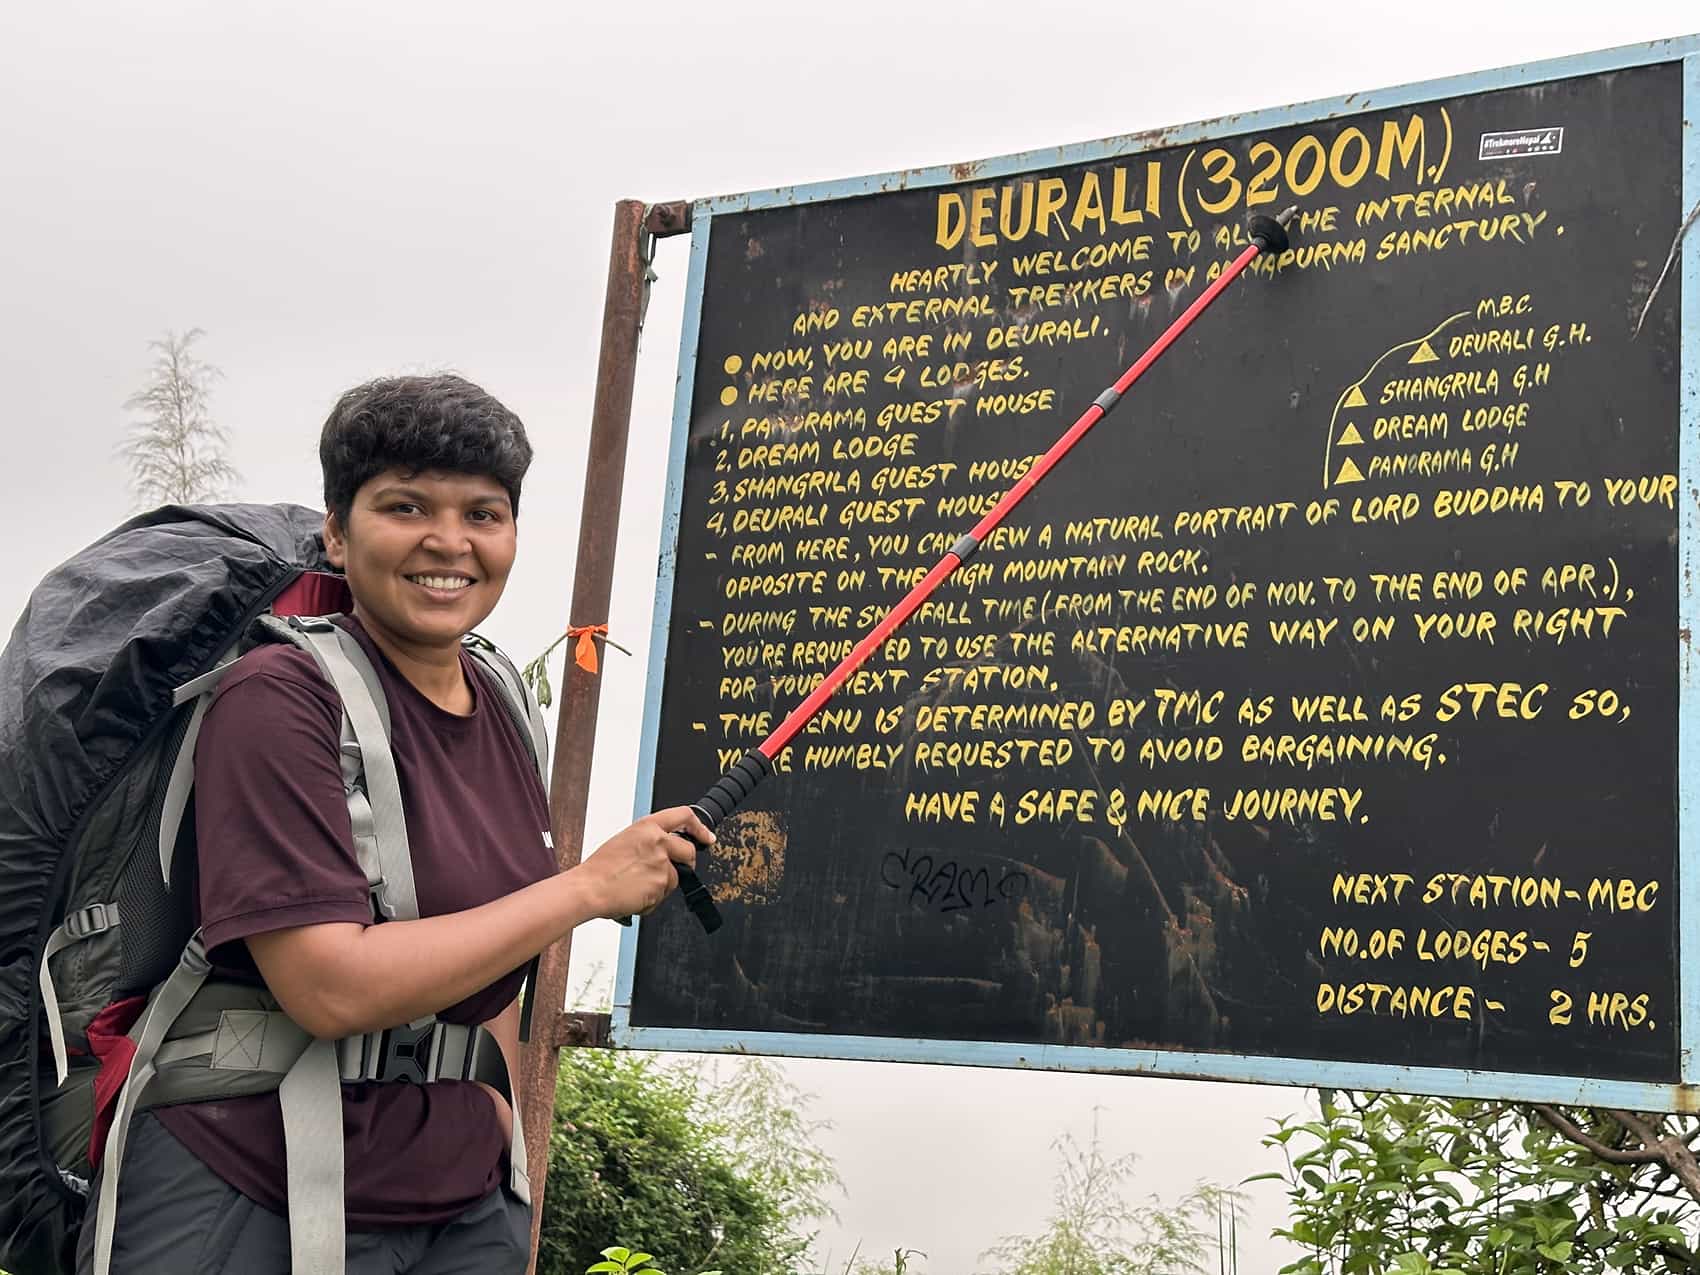 DEURALI (3200M.)
#TrekmoreNepal
HEARTLY WELCOME TO ALL THE INTERNAL
AND EXTERNAL TREKKERS IN ANNAPURNA SANCTURY.
● NOW, YOU ARE IN DEURALI.
● HERE ARE 4 LODGES.
1, PANORAMA GUEST HOUSE
2, DREAM LODGE
3, SHANGRILA GUEST HOUSE
4, DEURALI GUEST HOUSE
M.B.C.
DEURALI G.H.
SHANGRILA G.H
DREAM LODGE
PANORAMA G.H
- FROM HERE, YOU CAN VIEW A NATURAL PORTRAIT OF LORD BUDDHA TO YOUR
OPPOSITE ON THE HIGH MOUNTAIN ROCK.
- DURING THE SNOWFALL TIME (FROM THE END OF NOV. TO THE END OF APR.),
YOU'RE REQUESTED TO USE THE ALTERNATIVE WAY ON YOUR RIGHT
FOR YOUR NEXT STATION.
- THE MENU IS DETERMINED BY TMC AS WELL AS STEC SO,
YOU'RE HUMBLY REQUESTED TO AVOID BARGAINING.
HAVE A SAFE & NICE JOURNEY.
NEXT STATION-MBC
NO.OF LODGES- 5
DISTANCE- 2 HRS.